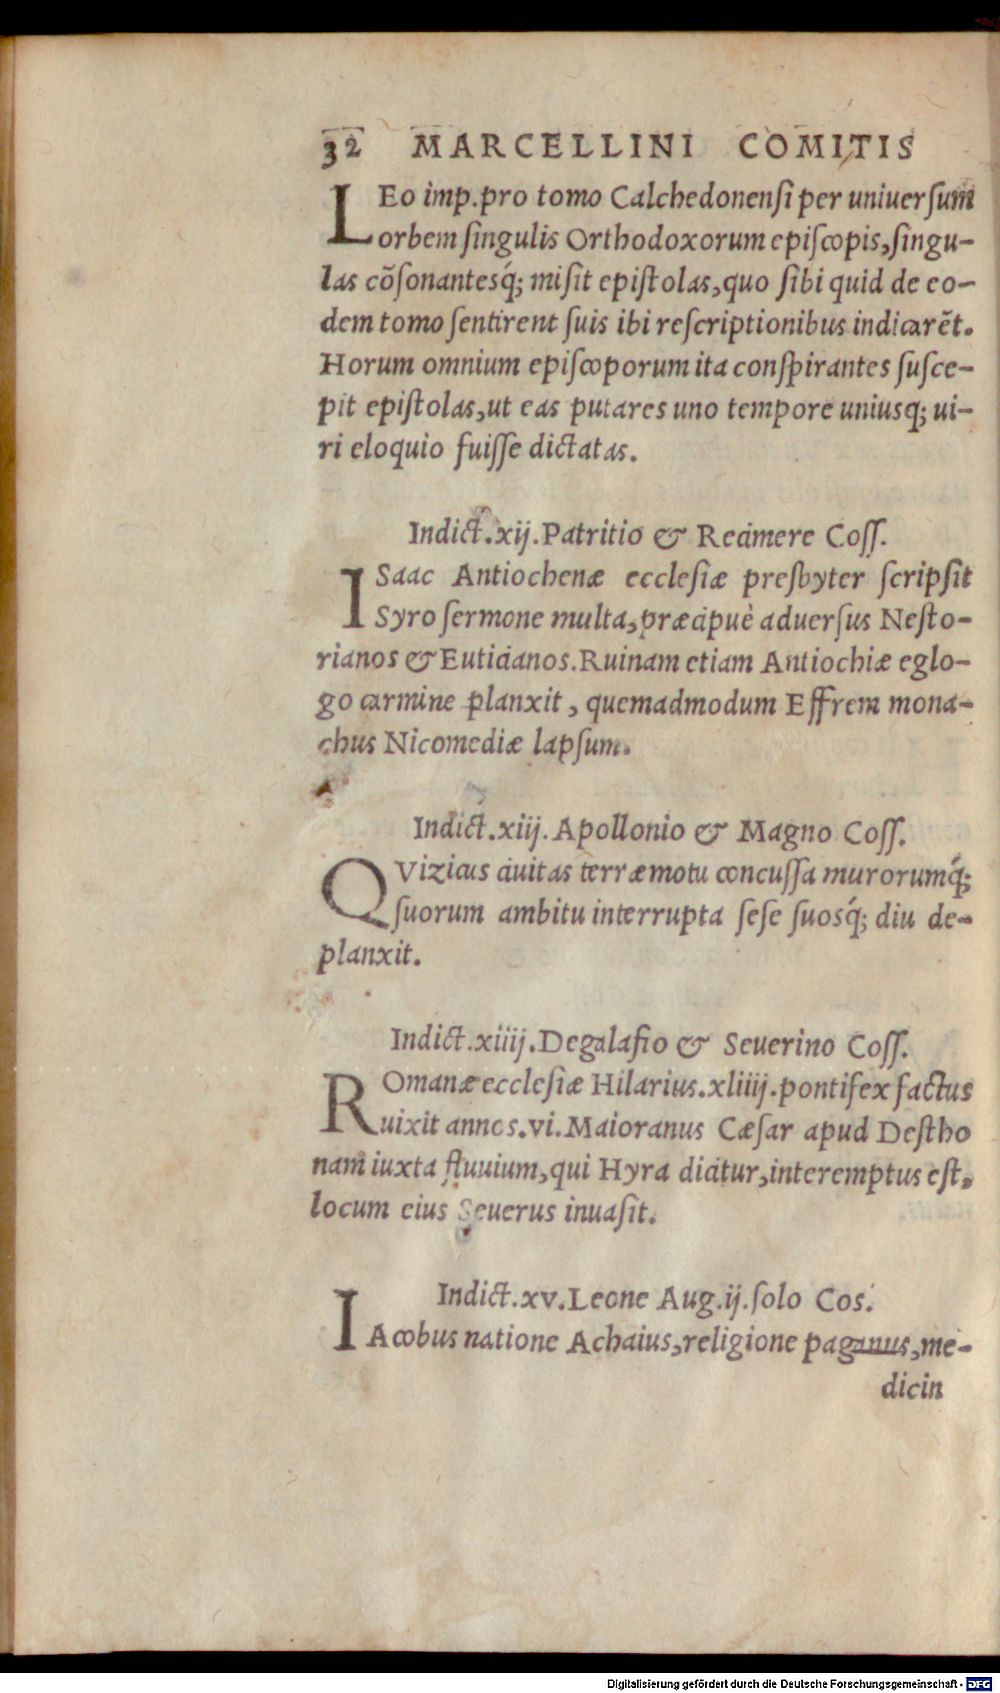 32 MARCELLINI COMITIS
LEo imp.pro tomo Calchedonensi per uniuersum
orbem singulis Orthodoxorum episcopis,singu-
las cõsonantesq́; misit epistolas,quo sibi quid de eo-
dem tomo sentirent suis ibi rescriptionibus indicarẽt.
Horum omnium episcoporum ita conspirantes susce-
pit epistolas,ut eas putares uno tempore uniusq; ui-
ri eloquio fuisse dictatas.
Indict.xij.Patritio & Recimere Coss.
ISaac Antiochenæ ecclesiæ presbyter scripsit
Syro sermone multa,præcipuè aduersus Nesto-
rianos & Euticianos.Ruinam etiam Antiochiæ eglo-
go carmine planxit, quemadmodum Effrem mona-
chus Nicomediæ lapsum.
Indict.xiij.Apollonio & Magno Coss.
QVizicus ciuitas terræmotu concussa murorumq́;
suorum ambitu interrupta sese suosq́; diu de-
planxit.
Indict.xiiij.Degalafio & Seuerino Coss.
ROmanæ ecclesiæ Hilarius.xliiij.pontifex factus
uixit annos.vi.Maioranus Cæsar apud Destho
nam iuxta fluuium,qui Hyra dicitur,interemptus est,
locum eius Seuerus inuasit.
Indict.xv.Leone Aug.ij.solo Cos.
IAcobus natione Achaius,religione paganus,me-
dicin
Digitalisierung gefördert durch die Deutsche Forschungsgemeinschaft - DFG